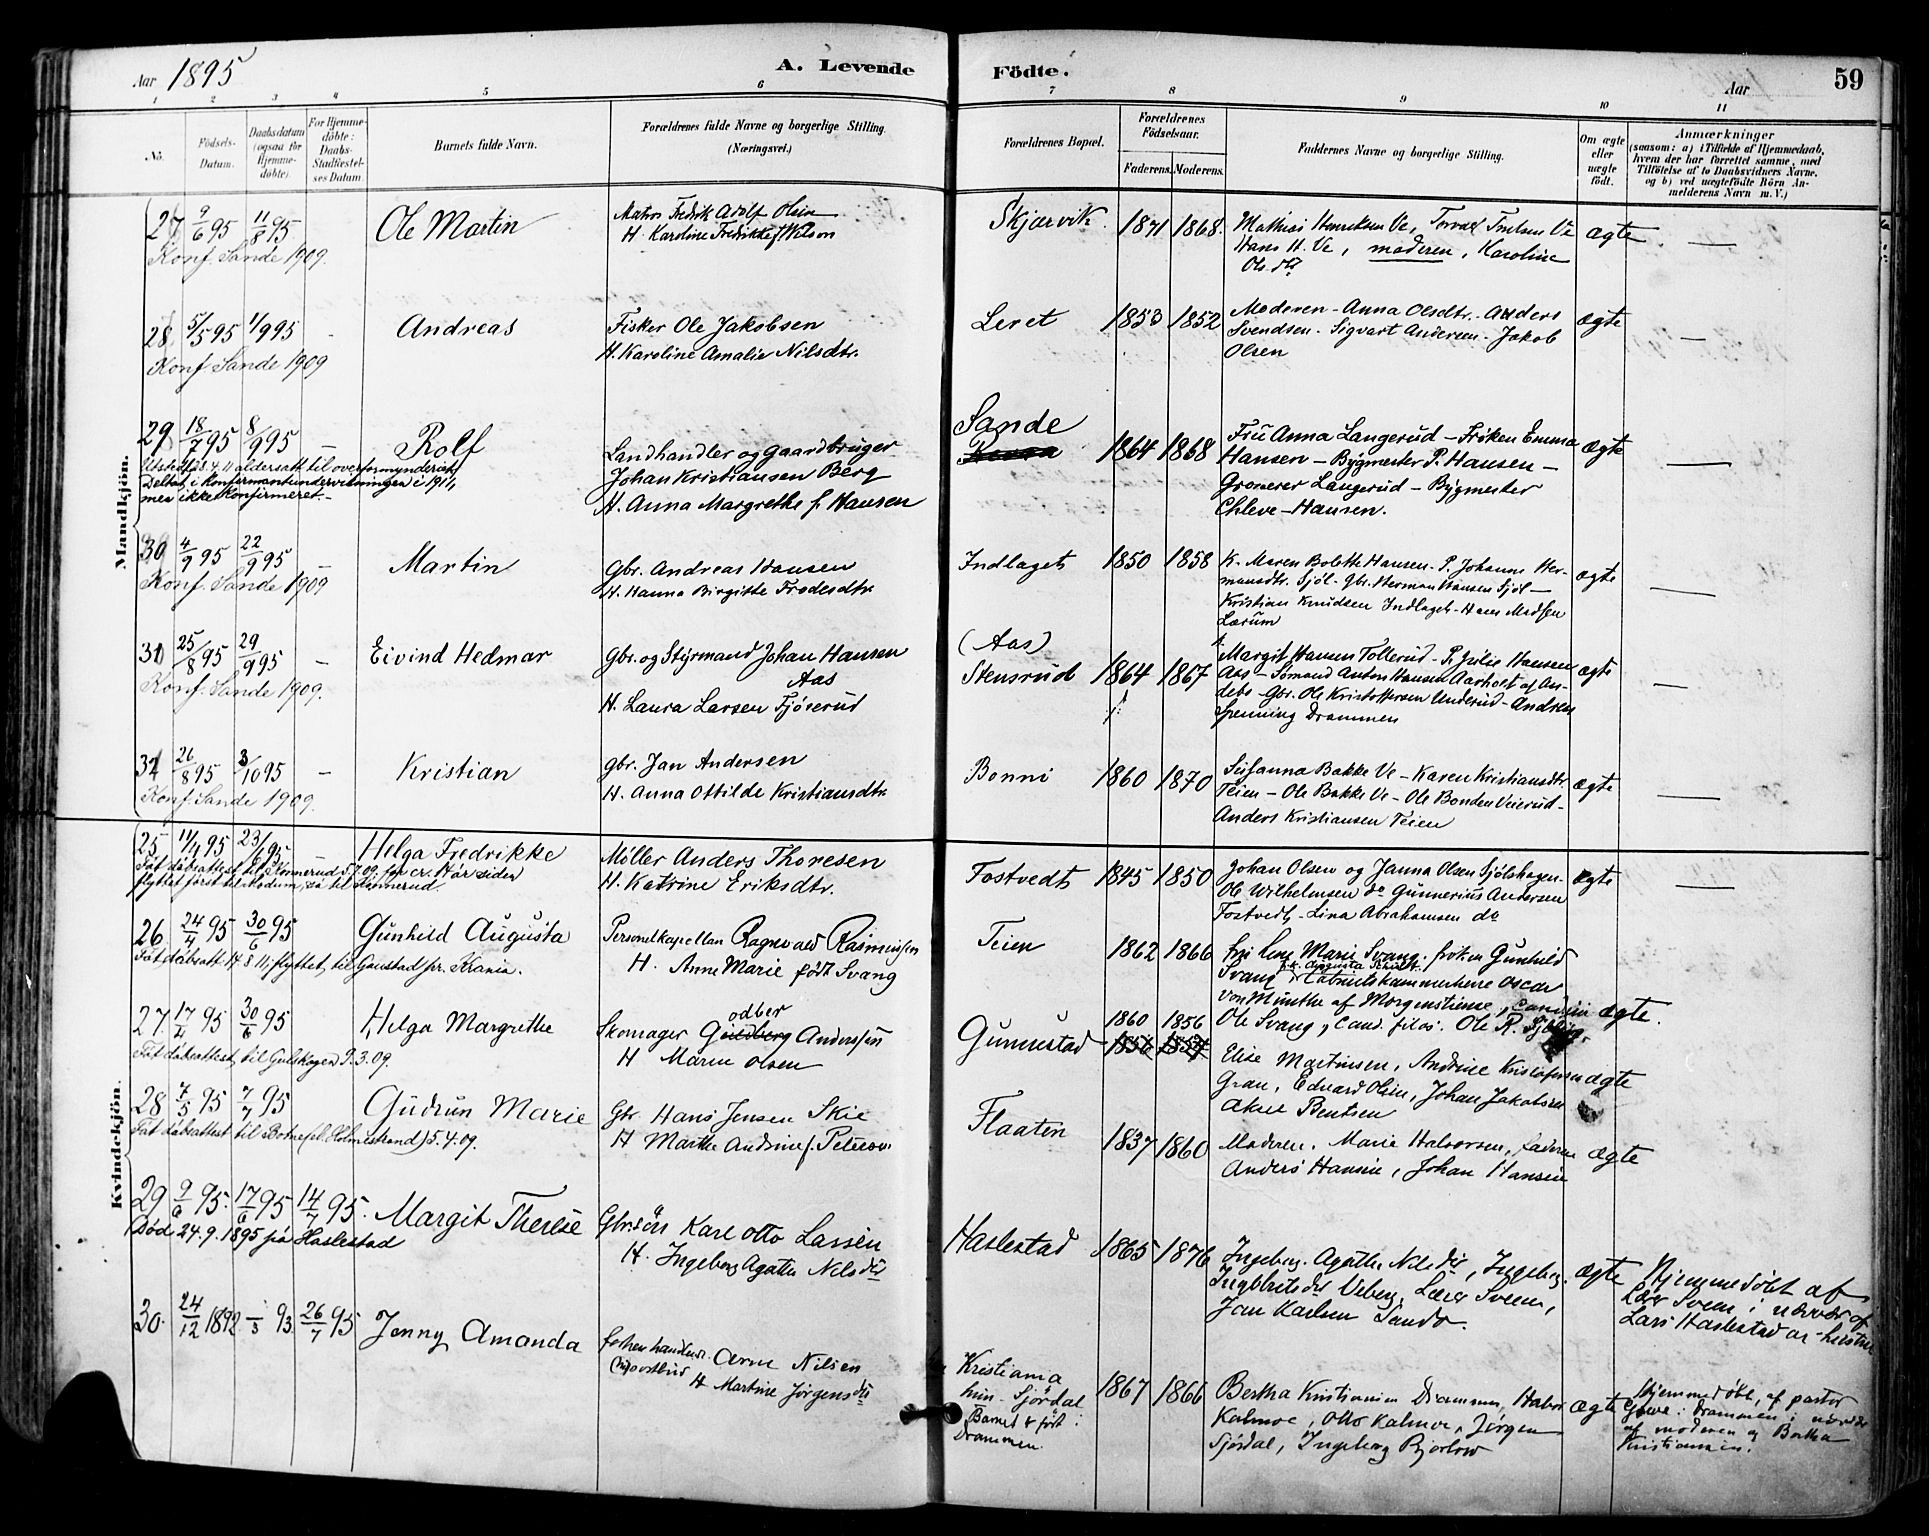 Aar 1895
A. Levende
Födte.
Aar
59
1 2 3 4 5 6 7 8 9 10 11
No.
Födsels-
Datum.
Daabsdatum
(ogsaa for
Hjemme-
döbte).
For Hjemme-
döbte:
Daabs-
Stadfæstel-
ses Datum
Barnets fulde Navn.
Forældrenes fulde Navne og borgerlige Stilling.
(Næringsvei.)
Forældrenes Bopæl.
Forældrenes
Födselsaar.
Faderens. Moderens.
Faddernes Navne og borgerlige Stilling.
Om ægte
eller
uægte
födt.
Anmærkninger
(saasom: a) i Tilfælde af Hjemmedaab,
hvem der har forrettet samme, med
Tilföielse af to Daabsvidners Navne,
og b) ved uægtefödte Börn An-
melderens Navn m.V.)
Mandkjön.
27 9/6 95 11/8 95 Ole Martin
Konf. Sande 1909.
Matros Fredrik Adolf Olsen
H. Karoline Fredrikke f. Nilson
Skjærvik 1871 1868.
Mathias Henriksen Ve,
Hans H. Ve, moderen, Karoline
Ols.dtr
ægte —
28 5/5 95 1/9 95 Andreas
Konf. Sande 1909
Fisker Ole Jakobsen
H. Karoline Amalie Nilsdtr.
Leret 1853 1852
Moderen - Anna Olsdtr. - Anders
Svendsen - Sigvart Andersen - Jakob
Olsen
ægte —
29 18/7 95 8/9 95 — Rolf
Utstedt 28.4.11 aldersatt. til overformynderiet
Deltat i konfirmantundervisningen i 1911,
men ikke konfirmeret. -
Landhandler og Gaardbruger
Johan Kristiansen Berg
H. Anna Margrethe f. Hansen
Sande 1864 1868
Fru Anna Langerud - Frøken Emma
Hansen - Bygmester P. Hansen -
Grosserer Langerud - Bygmester
Chleve - Hansen.
ægte —
30 4/9 95 22/9 95 — Martin
Konf. Sande 1909
Gbr. Andreas Hansen
H. Hanna Birgitte Frodesdtr.
Indlaget 1850 1858
K. Maren Bolette Hansen - P. Johanne Her-
mansdtr. Sjöl - Gbr. Herman Hansen Sjöl -
Kristian Knudsen Indlaget - Hans Madsen
Lærum
ægte —
31 25/8 95 29/9 95 — Eivind Hedmar
Konf. Sande 1909.
Gbr. og Styrmand Johan Hansen
Aas
H. Laura Larsen Fjöserud
(Aas)
Stensrud 1864 1867
Margit Hansen Tollerud - P. Julie Hansen
Aas - Sömand Anton Hansen Aarholt af An-
debo - Gbr. Ole Kristoffersen Underud - Andreas
Spenning Drammen
ægte —
32 26/8 95 3/10 95 — Kristian
Konf. Sande 1909.
Gbr. Jan Andersen
H. Anna Ottilde Kristiansdtr.
Bonni 1860 1870
Susanna Bakke Ve - Karen Kristiansdtr.
Teien - Ole Bakke Ve - Ole Bonden Veierud -
Anders Kristiansen Teien
ægte —
Kvindekjön.
25 11/4 95 23/6 95 — Helga Fredrikke
Fåt dåbsattest til Konnerud 5.7.09. for cr. 14 år siden
flyttet först til Modum, så til Konnerud.
Møller Anders Thoresen
H. Katrine Eriksdtr.
Fostvedt 1845 1850
Johan Olsen og Janna Olsen Sjölshagen -
Ole Wilhelmsen do Gunnerius Andersen
Fostvedt - Lina Abrahamsen do
ægte —
26 24/4 95 30/6 95 Gunhild Augusta
Fåt dåbsatt. 14.8.11; flyttet til Gaustad pr. Krania.
Personelkapellan Ragnvald Rasmussen
H. Anne Marie født Svang
Teien 1862 1866
Marie Svang, frøken Gunhild
Svang, frk. Augusta Schirdt, Cabinetskammerherre Oscar
von Munthe af Morgenstierne,
Ole Svang, Cand. filos. Ole R.
ægte.
27 17/4 95 30/6 95 Helga Margrethe
Fåt dåbsattest til Gulskogen 9.3.09.
odber
Skomager Guldberg Anderssen
H Maren Olsen
Gunnestad 1860 1856
Elise Martinsen, Andrine Kristofersen
Gran, Edvard Olsen, Johan Jakobsen
Aknes Bentsen
ægte
28 7/5 95 7/7 95 Gudrun Marie
Fåt dåbsattest til Botne (pl. Holmestrand) 5.4.09.
Gbr. Hans Jensen Skie
H Marthe Andrine f. Peterson
Flaaten 1837 1860
Moderen, Marie Halvorsen, faderen
Anders Hansen, Johan Hansen
ægte
29 9/6 95. 17/6 95 14/7 95. Margit Therese
Død 24.9.1895 på Haslestad
Gbr.søn Karl Otto Larsen
H. Ingeborg Agathe Nilsdtr
Haslestad 1865 1876
Ingeborg Agathe Nilsdtr, Ingeborg
Ingebretsdtr Veberg, Lærer Sveen,
Jan Karlsen Sando.
ægte
Hjemmedøbt af
Lær Sveen i nærvær af
Lars Haslestad og hustru
30. 24/12 1892 /3 93. 26/7 95 Jenny Amanda
Arne Nilsen
H Martine Jørgensdtr
Kristiania
hun - Sjördal
Barnet er født i
Drammen. 1867 1866
Bertha Kristiansen Drammen, Halvor
Kalmoe, Otto Kalmoe, Jørgen
Sjördal, Ingeborg Bjørlow
ægte
Hjemmedøbt af pastor
Gerve i Drammen i nærvær
af moderen og Bertha
Kristiansen.